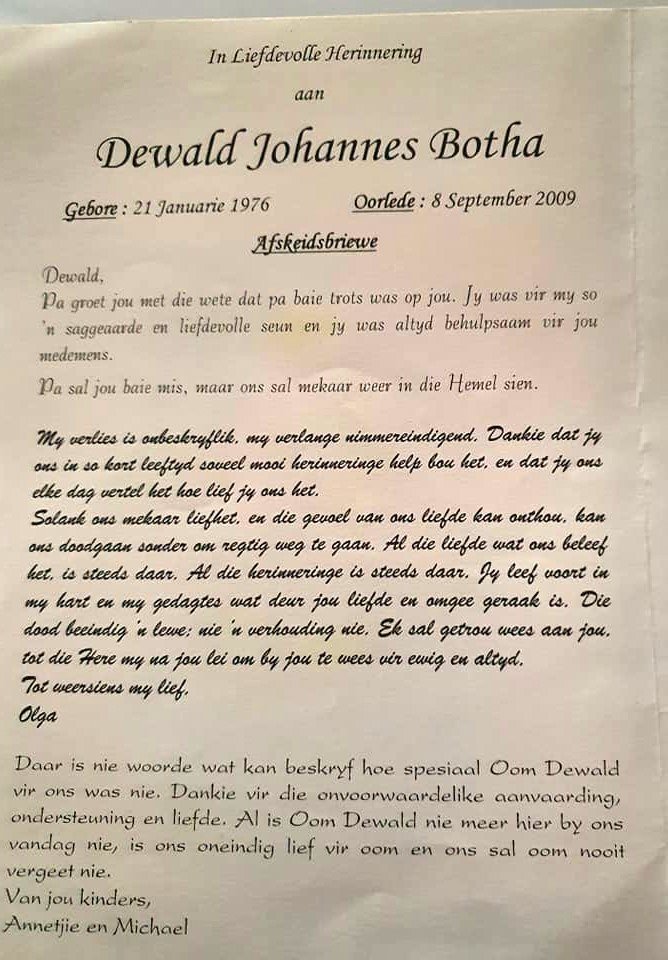 In Liefdevolle Herinnering
aan
Dewald Johannes Botha
Gebore : 21 Januarie 1976 Oorlede : 8 September 2009
Afskeidsbriewe
Dewald,
Pa groet jou met die wete dat pa baie trots was op jou. Jy was vir my so
'n saggeaarde en liefdevolle seun en jy was altyd behulpsaam vir jou
medemens.
Pa sal jou baie mis, maar ons sal mekaar weer in die Hemel sien.
My verlies is onbeskryflik, my verlange nimmereindigend. Dankie dat jy
ons in so kort leeftyd soveel mooi herinneringe help bou het, en dat jy ons
elke dag vertel het hoe lief jy ons het.
Solank ons mekaar liefhet, en die gevoel van ons liefde kan onthou, kan
ons doodgaan sonder om regtig weg te gaan. Al die liefde wat ons beleef
het, is steeds daar. Al die herinneringe is steeds daar. Jy leef voort in
my hart en my gedagtes wat deur jou liefde en omgee geraak is. Die
dood beeindig 'n lewe; nie 'n verhouding nie. Ek sal getrou wees aan jou,
tot die Here my na jou lei om by jou te wees vir ewig en altyd.
Tot weersiens my lief,
Olga
Daar is nie woorde wat kan beskryf hoe spesiaal Oom Dewald
vir ons was nie. Dankie vir die onvoorwaardelike aanvaarding,
ondersteuning en liefde. Al is Oom Dewald nie meer hier by ons
vandag nie, is ons oneindig lief vir oom en ons sal oom nooit
vergeet nie.
Van jou kinders,
Annetjie en Michael